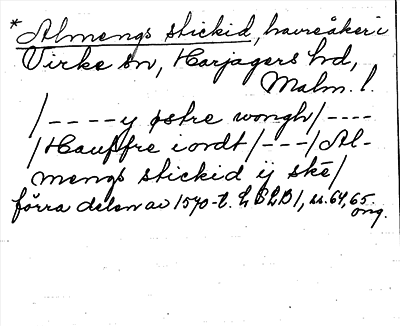 * Almengs stickid, havreåker i
Virke sn, Harjagers hd,
Malm. l.
/----y østre wongh/----
/Hauffre iordt/---/Al-
mengs stickid ij skē/
förra delen av 1570-t. LSLB 1, ss. 64, 65.
ong.